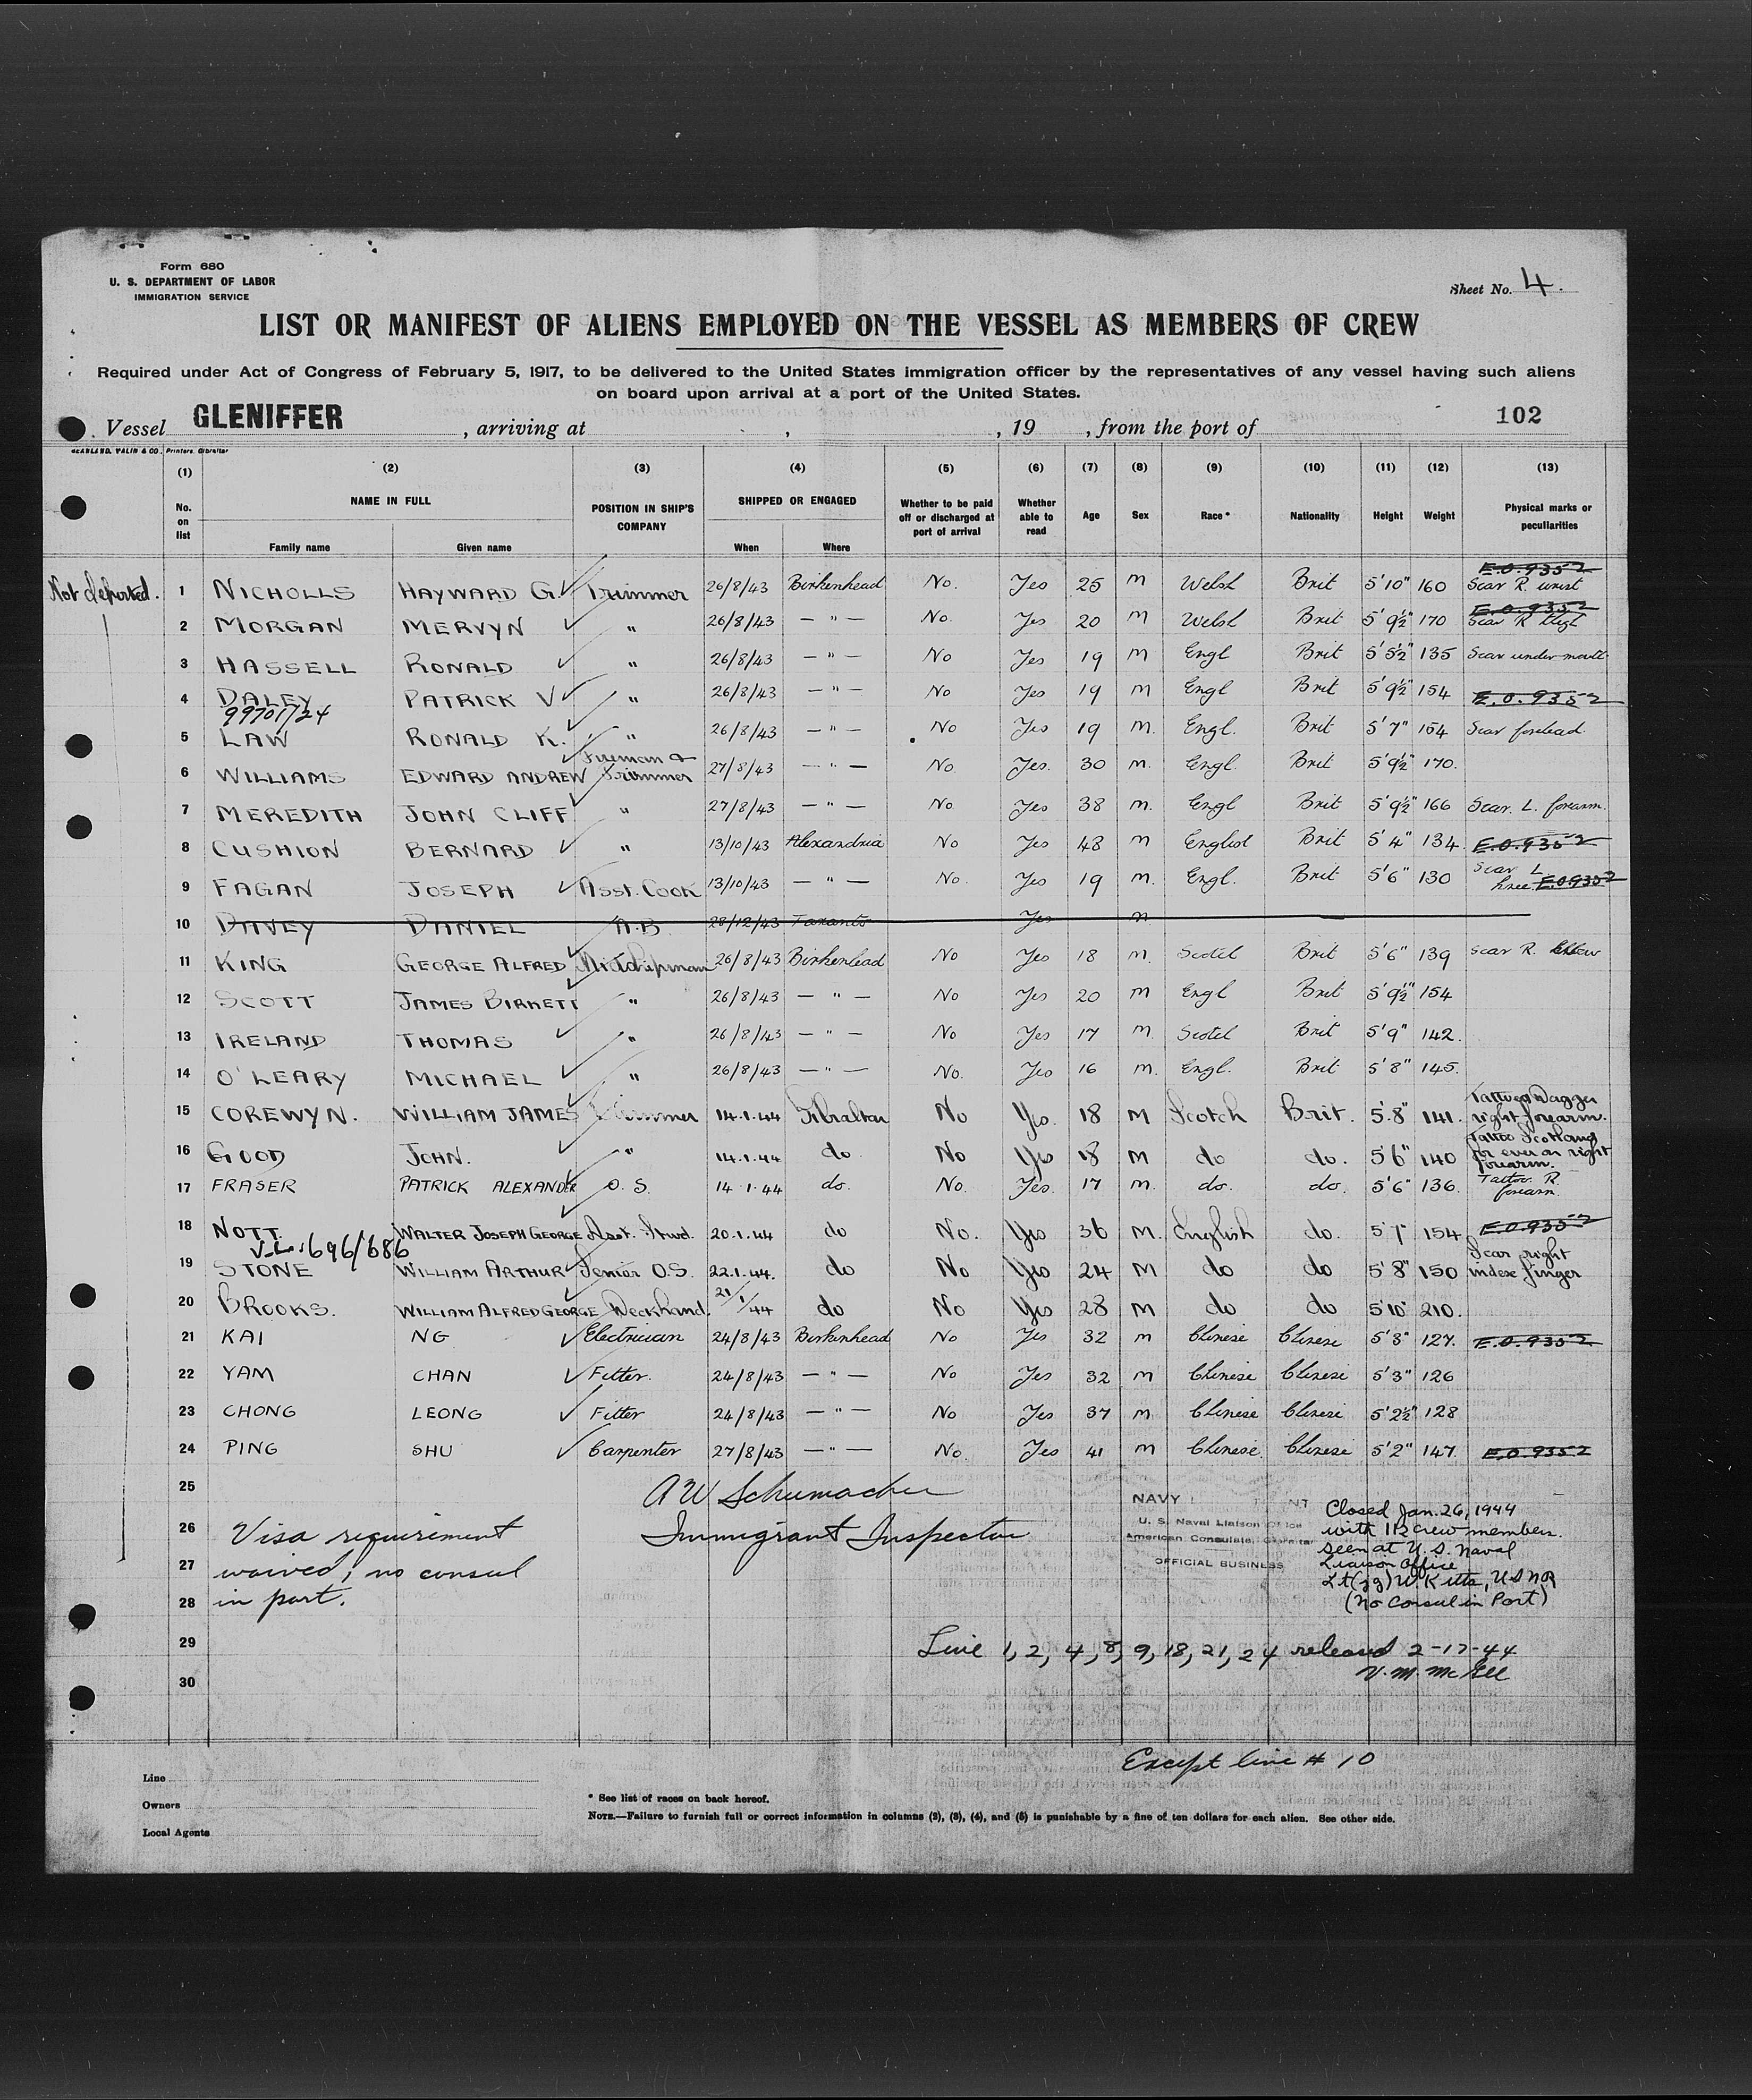 Form 680
U. S. DEPARTMENT OF LABOR
IMMIGRATION SERVICE
Sheet No. 4.
LIST OR MANIFEST OF ALIENS EMPLOYED ON THE VESSEL AS MEMBERS OF CREW
Required under Act of Congress of February 5, 1917, to be delivered to the United States immigration officer by the representatives of any vessel having such aliens
on board upon arrival at a port of the United States.
102
Vessel GLENIFFER, arriving at , , 19 , from the port of
(1) (2) (3) (4) (5) (6) (7) (8) (9) (10) (11) (12) (13)
No. on list NAME IN FULL Family name Given name POSITION IN SHIP'S COMPANY SHIPPED OR ENGAGED When Where Whether to be paid off or discharged at port of arrival Whether able to read Age Sex Race* Nationality Height Weight Physical marks or peculiarities
Not deported. 1 NICHOLLS HAYWARD G. Trimmer 26/8/43 Birkenhead No. Yes 25 M Welsh Brit 5'10" 160 E.O.9352 Scar R. wrist
2 MORGAN MERVYN " 26/8/43 — " — No. Yes 20 M Welsh Brit 5'9½" 170 E.O.9352 Scar R thigh
3 HASSELL RONALD " 26/8/43 — " — No Yes 19 M Engl Brit 5'5½" 135 Scar under mouth
4 DALEY PATRICK V " 26/8/43 — " — No Yes 19 M Engl Brit 5'9½" 154 E.O.9352
99701/24
5 LAW RONALD K. " 26/8/43 — " — No Yes 19 M. Engl. Brit 5'7" 154 Scar forehead.
6 WILLIAMS EDWARD ANDREW Fireman & Trimmer 27/8/43 — " — No. Yes. 30 M. Engl. Brit 5'9½" 170.
7 MEREDITH JOHN CLIFF " 27/8/43 — " — No Yes 38 M. Engl Brit 5'9½" 166 Scar. L. forearm.
8 CUSHION BERNARD " 13/10/43 Alexandria No Yes 48 M English Brit 5'4" 134. E.O.9352
9 FAGAN JOSEPH Asst. Cook 13/10/43 — " — No. Yes 19 M. Engl. Brit 5'6" 130 Scar L. knee. E.O.9352
10 DAVEY DANIEL A.B. 28/12/43 Taranto Yes M
11 KING GEORGE ALFRED Midshipman 26/8/43 Birkenhead No Yes 18 M. Scotch Brit 5'6" 139 Scar R. elbow
12 SCOTT JAMES BIRKETT " 26/8/43 — " — No Yes 20 M Engl Brit 5'9½" 154
13 IRELAND THOMAS " 26/8/43 — " — No Yes 17 M. Scotch Brit 5'9" 142.
14 O'LEARY MICHAEL " 26/8/43 — " — No. Yes 16 M. Engl. Brit 5'8" 145.
15 COREWYN. WILLIAM JAMES Trimmer 14.1.44 Gibraltar No Yes. 18 M Scotch Brit. 5'8" 141. Tattoo Dagger right forearm.
16 GOOD JOHN. " 14.1.44 do No Yes 18 M do do. 5'6" 140 Tattoo Scotland for ever on right forearm.
17 FRASER PATRICK ALEXANDER O. S. 14.1.44 do. No. Yes. 17 M. do. do. 5'6" 136. Tattoo R. forearm.
18 NOTT. WALTER JOSEPH GEORGE Asst. Stwd. 20.1.44 do No. Yes 36 M. English do. 5'7" 154 E.O.9352
696/686
19 STONE WILLIAM ARTHUR Senior O.S. 22.1.44. do No Yes 24 M do do 5'8" 150 Scar right index finger
20 BROOKS. WILLIAM ALFRED GEORGE Deckhand. 21/1/44 do No Yes 28 M do do 5'10" 210.
21 KAI NG Electrician 24/8/43 Birkenhead No Yes 32 M Chinese Chinese 5'3" 127. E.O.9352
22 YAM CHAN Fitter. 24/8/43 — " — No Yes 32 M Chinese Chinese 5'3" 126
23 CHONG LEONG Fitter 24/8/43 — " — No Yes 37 M Chinese Chinese 5'2½" 128
24 PING SHU Carpenter 27/8/43 — " — No. Yes 41 M Chinese. Chinese 5'2" 147. E.O.9352
25
26
27
28
29
30
A W Schumacher
Immigrant Inspector
Visa requirement
waived; no consul
in port.
NAVY
U. S. Naval Liaison Office
American Consulate,
OFFICIAL BUSINESS
Closed Jan. 26, 1944
with 112 crew members.
seen at U. S. Naval
Liaison Office
Lt(jg) W. Kitts, USNR
(No Consul in Port)
Line 1, 2, 4, 8, 9, 18, 21, 24 released 2-17-44
V. M. McGee
Except line # 10
Line
Owners
Local Agents
* See list of races on back hereof.
NOTE.—Failure to furnish full or correct information in columns (2), (3), (4), and (5) is punishable by a fine of ten dollars for each alien. See other side.